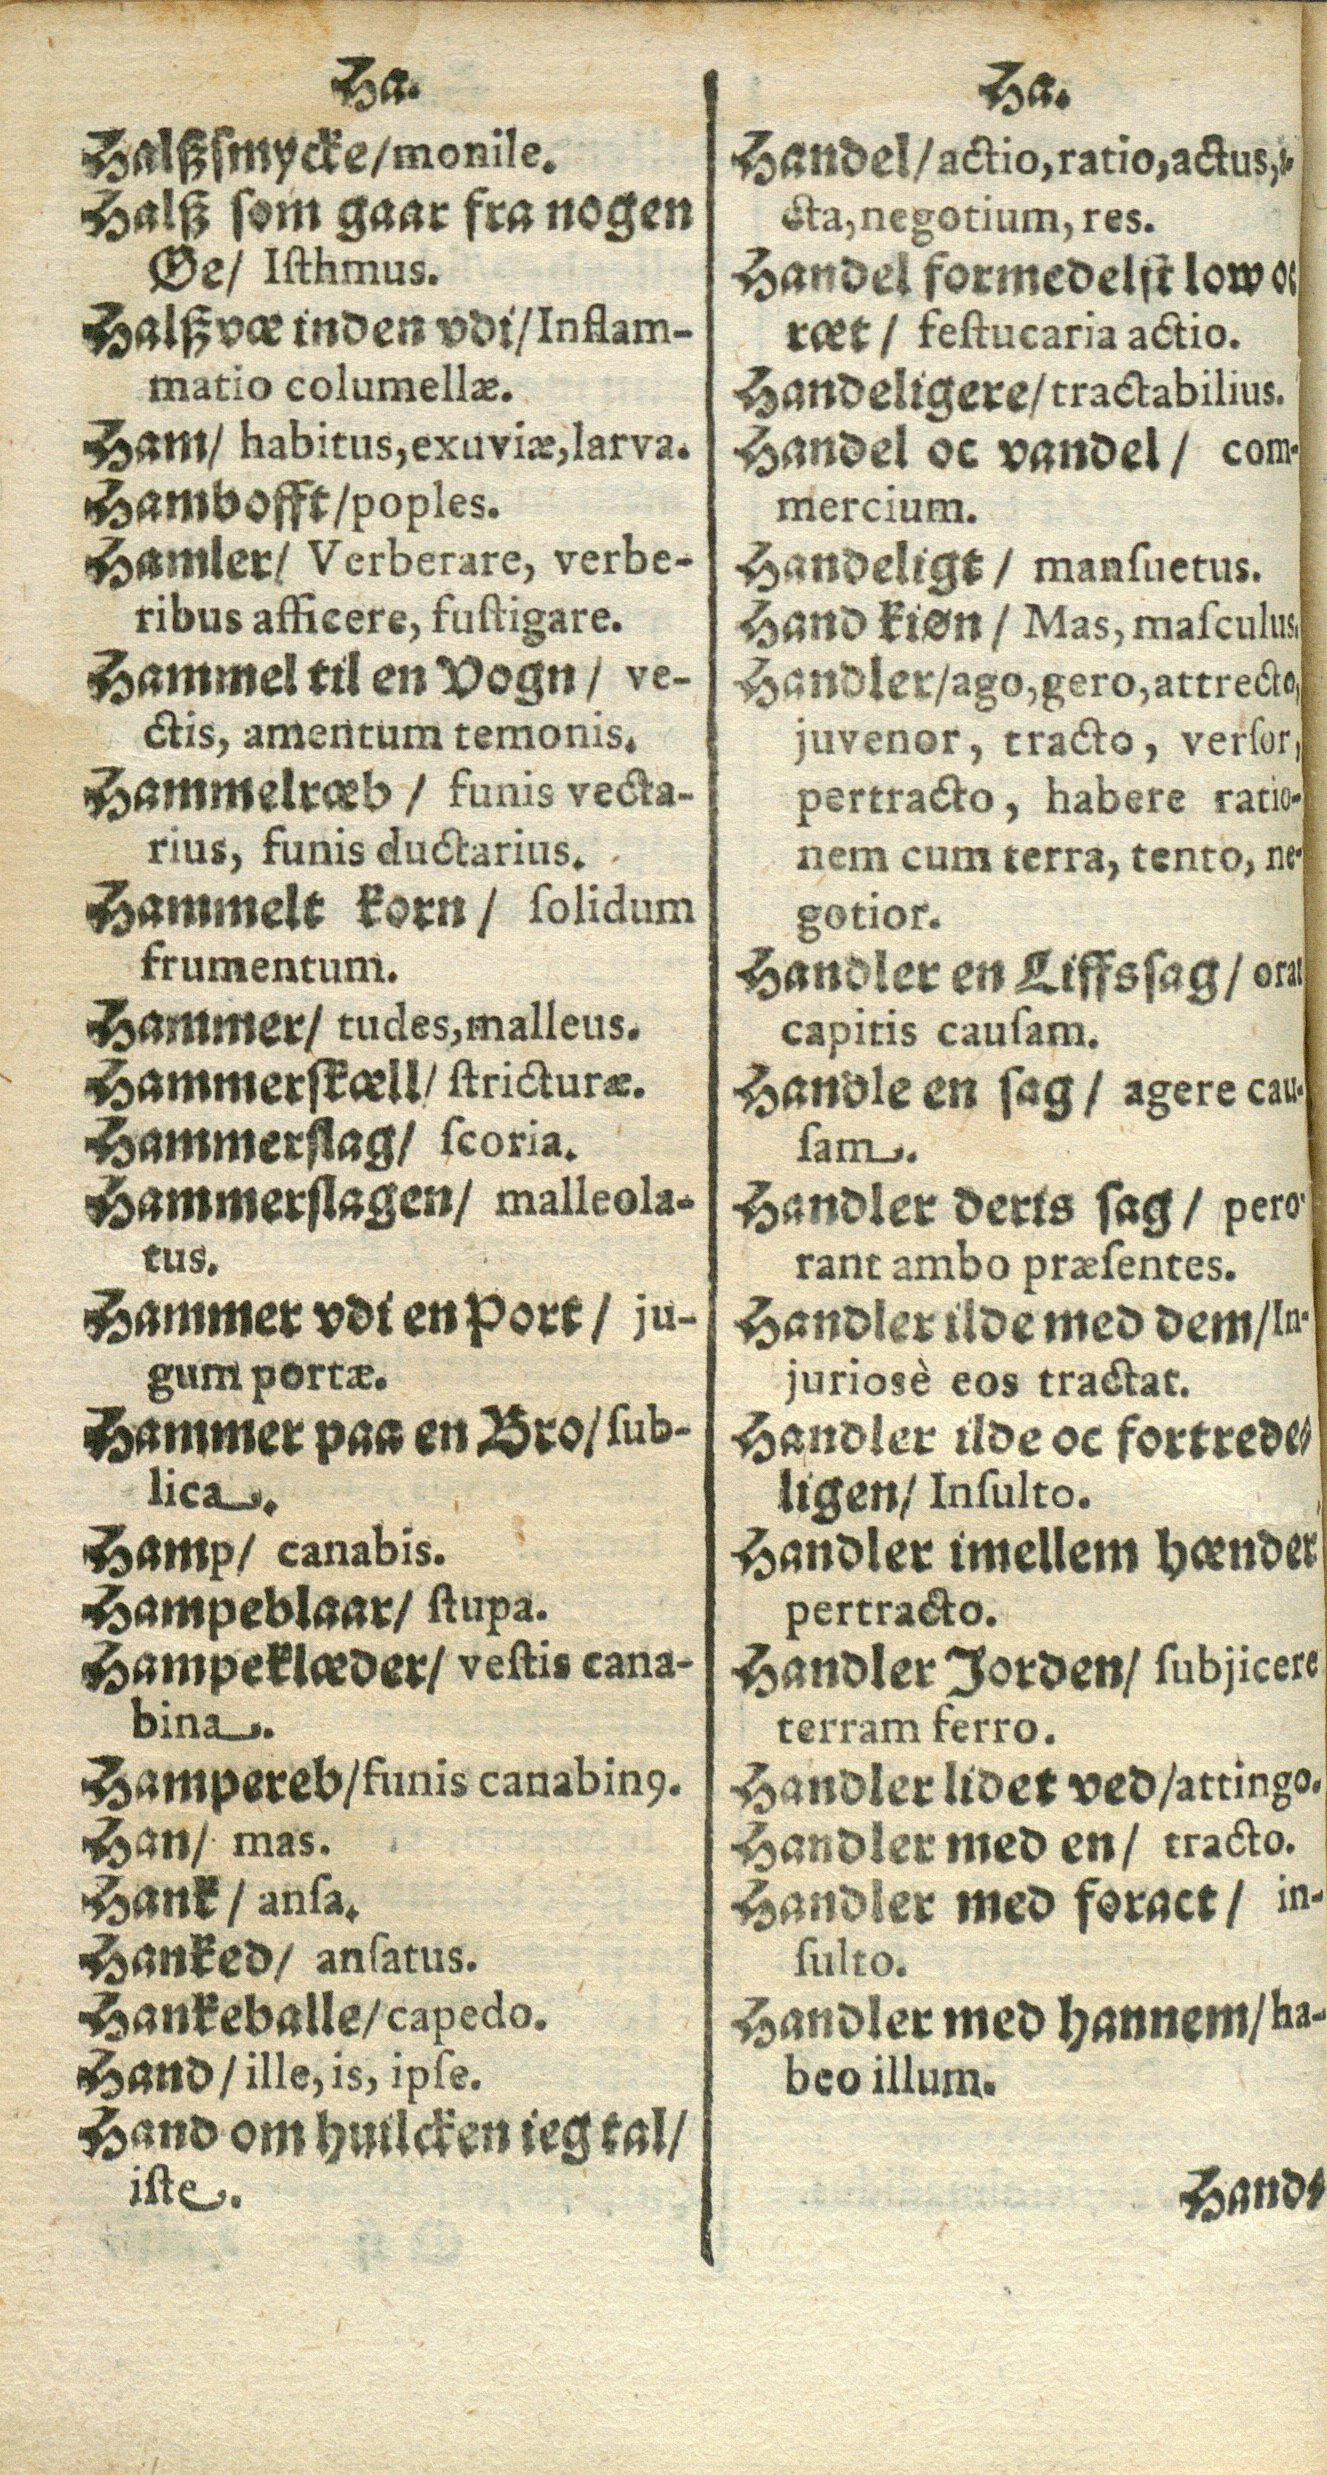 Ha.
Halßſmycke/monile.
Halß ſom gaar fra nogen
Øe/ Iſthmus.
Halßvæ inden vdi/Inflam-
matio columellæ.
Ham/ habitus,exuviæ,larva.
Hambofft/poples.
Hamler/ Verberare, verbe-
ribus afficere, fuſtigare.
Hammel til en Vogn/ ve-
ctis, amentum temonis.
Hammelræb/ funis vecta-
rius, funis ductarius.
Hammelt korn/ ſolidum
frumentum.
Hammer/ tudes,malleus.
Hammerſkæll/ ſtricturæ.
Hammerſlag/ ſcoria.
Hammerſlagen/ malleola-
tus.
Hammer vdi en Port/ ju-
gum portæ.
Hammer paa en Bro/ſub-
lica.
Hamp/ canabis.
Hampeblaar/ ſtupa.
Hampeklæder/ veſtis cana-
bina.
Hampereb/funis canabinꝯ.
Han/ mas.
Hank/ anſa.
Hanked/ anſatus.
Hankeballe/capedo.
Hand/ille, is, ipſe.
Hand om huilcken ieg tal/
iſte.
Ha.
Handel/actio,ratio,actus,
cta,negotium, res.
Handel formedelſt low oc
ræt/ feſtucaria actio.
Handeligere/tractabilius.
Handel oc vandel/ com-
mercium.
Handeligt/ manſuetus.
Hand kiøn/ Mas, maſculus.
Handler/ago,gero,attrecto,
juvenor, tracto, verſor,
pertracto, habere ratio-
nem cum terra, tento, ne-
gotior.
Handler en Liffsſag/ orat
capitis cauſam.
Handle en ſag/ agere cau-
ſam.
Handler deris ſag/ pero-
rant ambo præſentes.
Handler ilde med dem/In-
juriosè eos tractat.
Handler ilde oc fortrede-
ligen/ Inſulto.
Handler imellem hænder
pertracto.
Handler Jorden/ ſubjicere
terram ferro.
Handler lidet ved/attingo.
Handler med en/ tracto.
Handler med foract/ in-
ſulto.
Handler med hannem/ha-
beo illum.
Hands